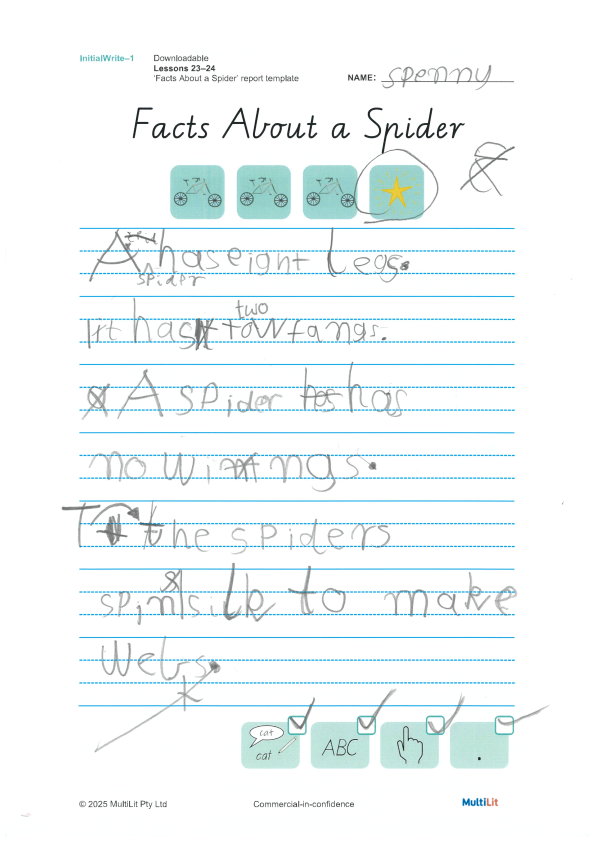 InitialWrite–1 Downloadable
Lessons 23–24
'Facts About a Spider' report template
NAME: spenny
Facts About a Spider
A has eight legs.
spider
two
It has tow fangs.
A spider has
no wings.
The spiders
spin silk to make
webs.
cat
cat
ABC
.
© 2025 MultiLit Pty Ltd Commercial-in-confidence MultiLit